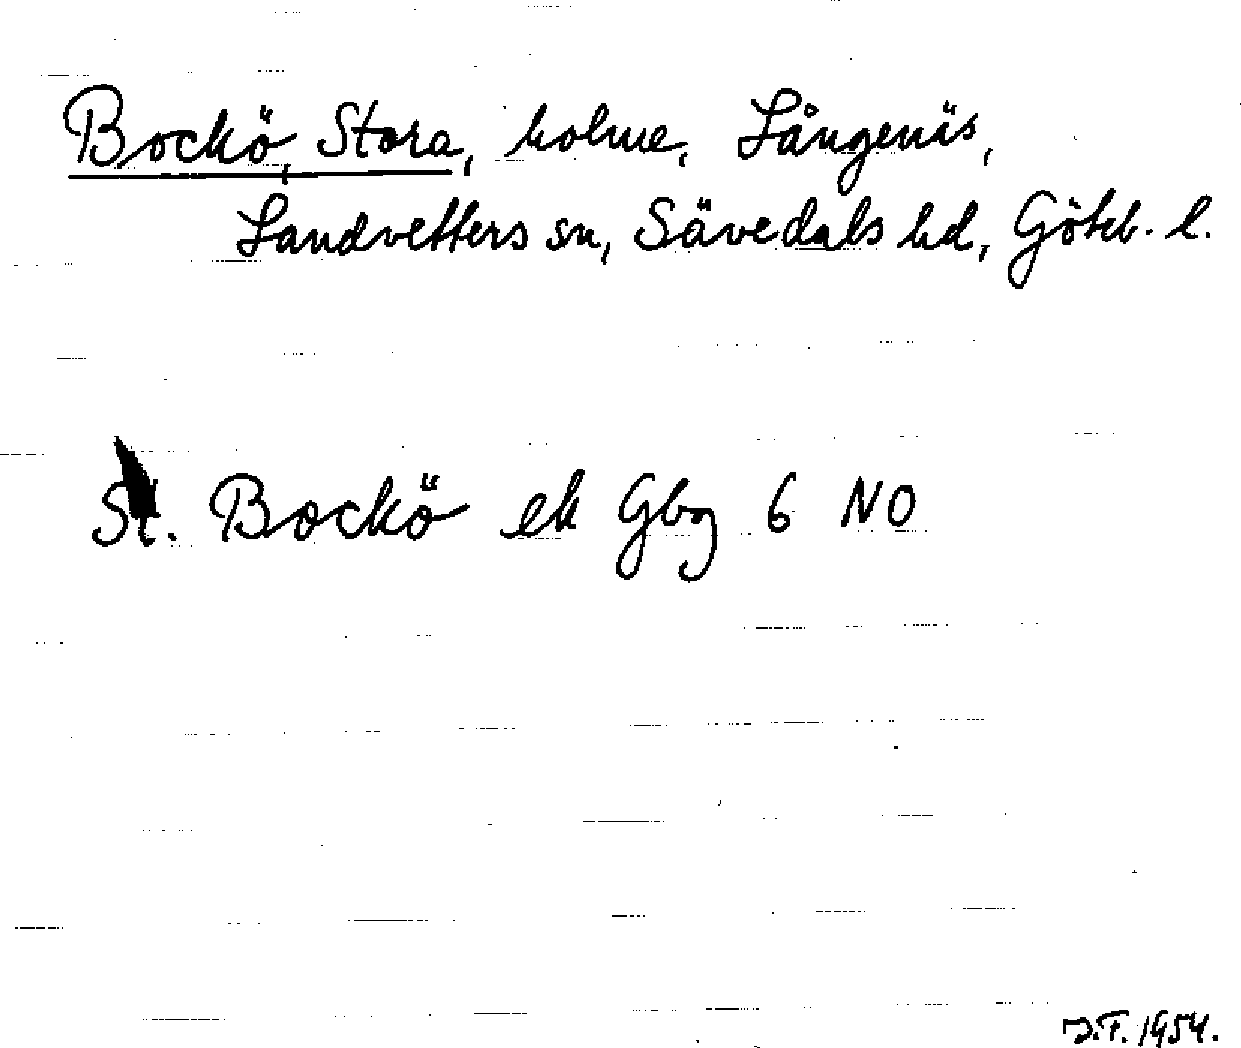 Bockö, Stora, holme, Långenäs,
Landvetters sn, Sävedals hd, Götebb. l.
St. Bockö ek Gbg 6 NO
J.F. 1954.